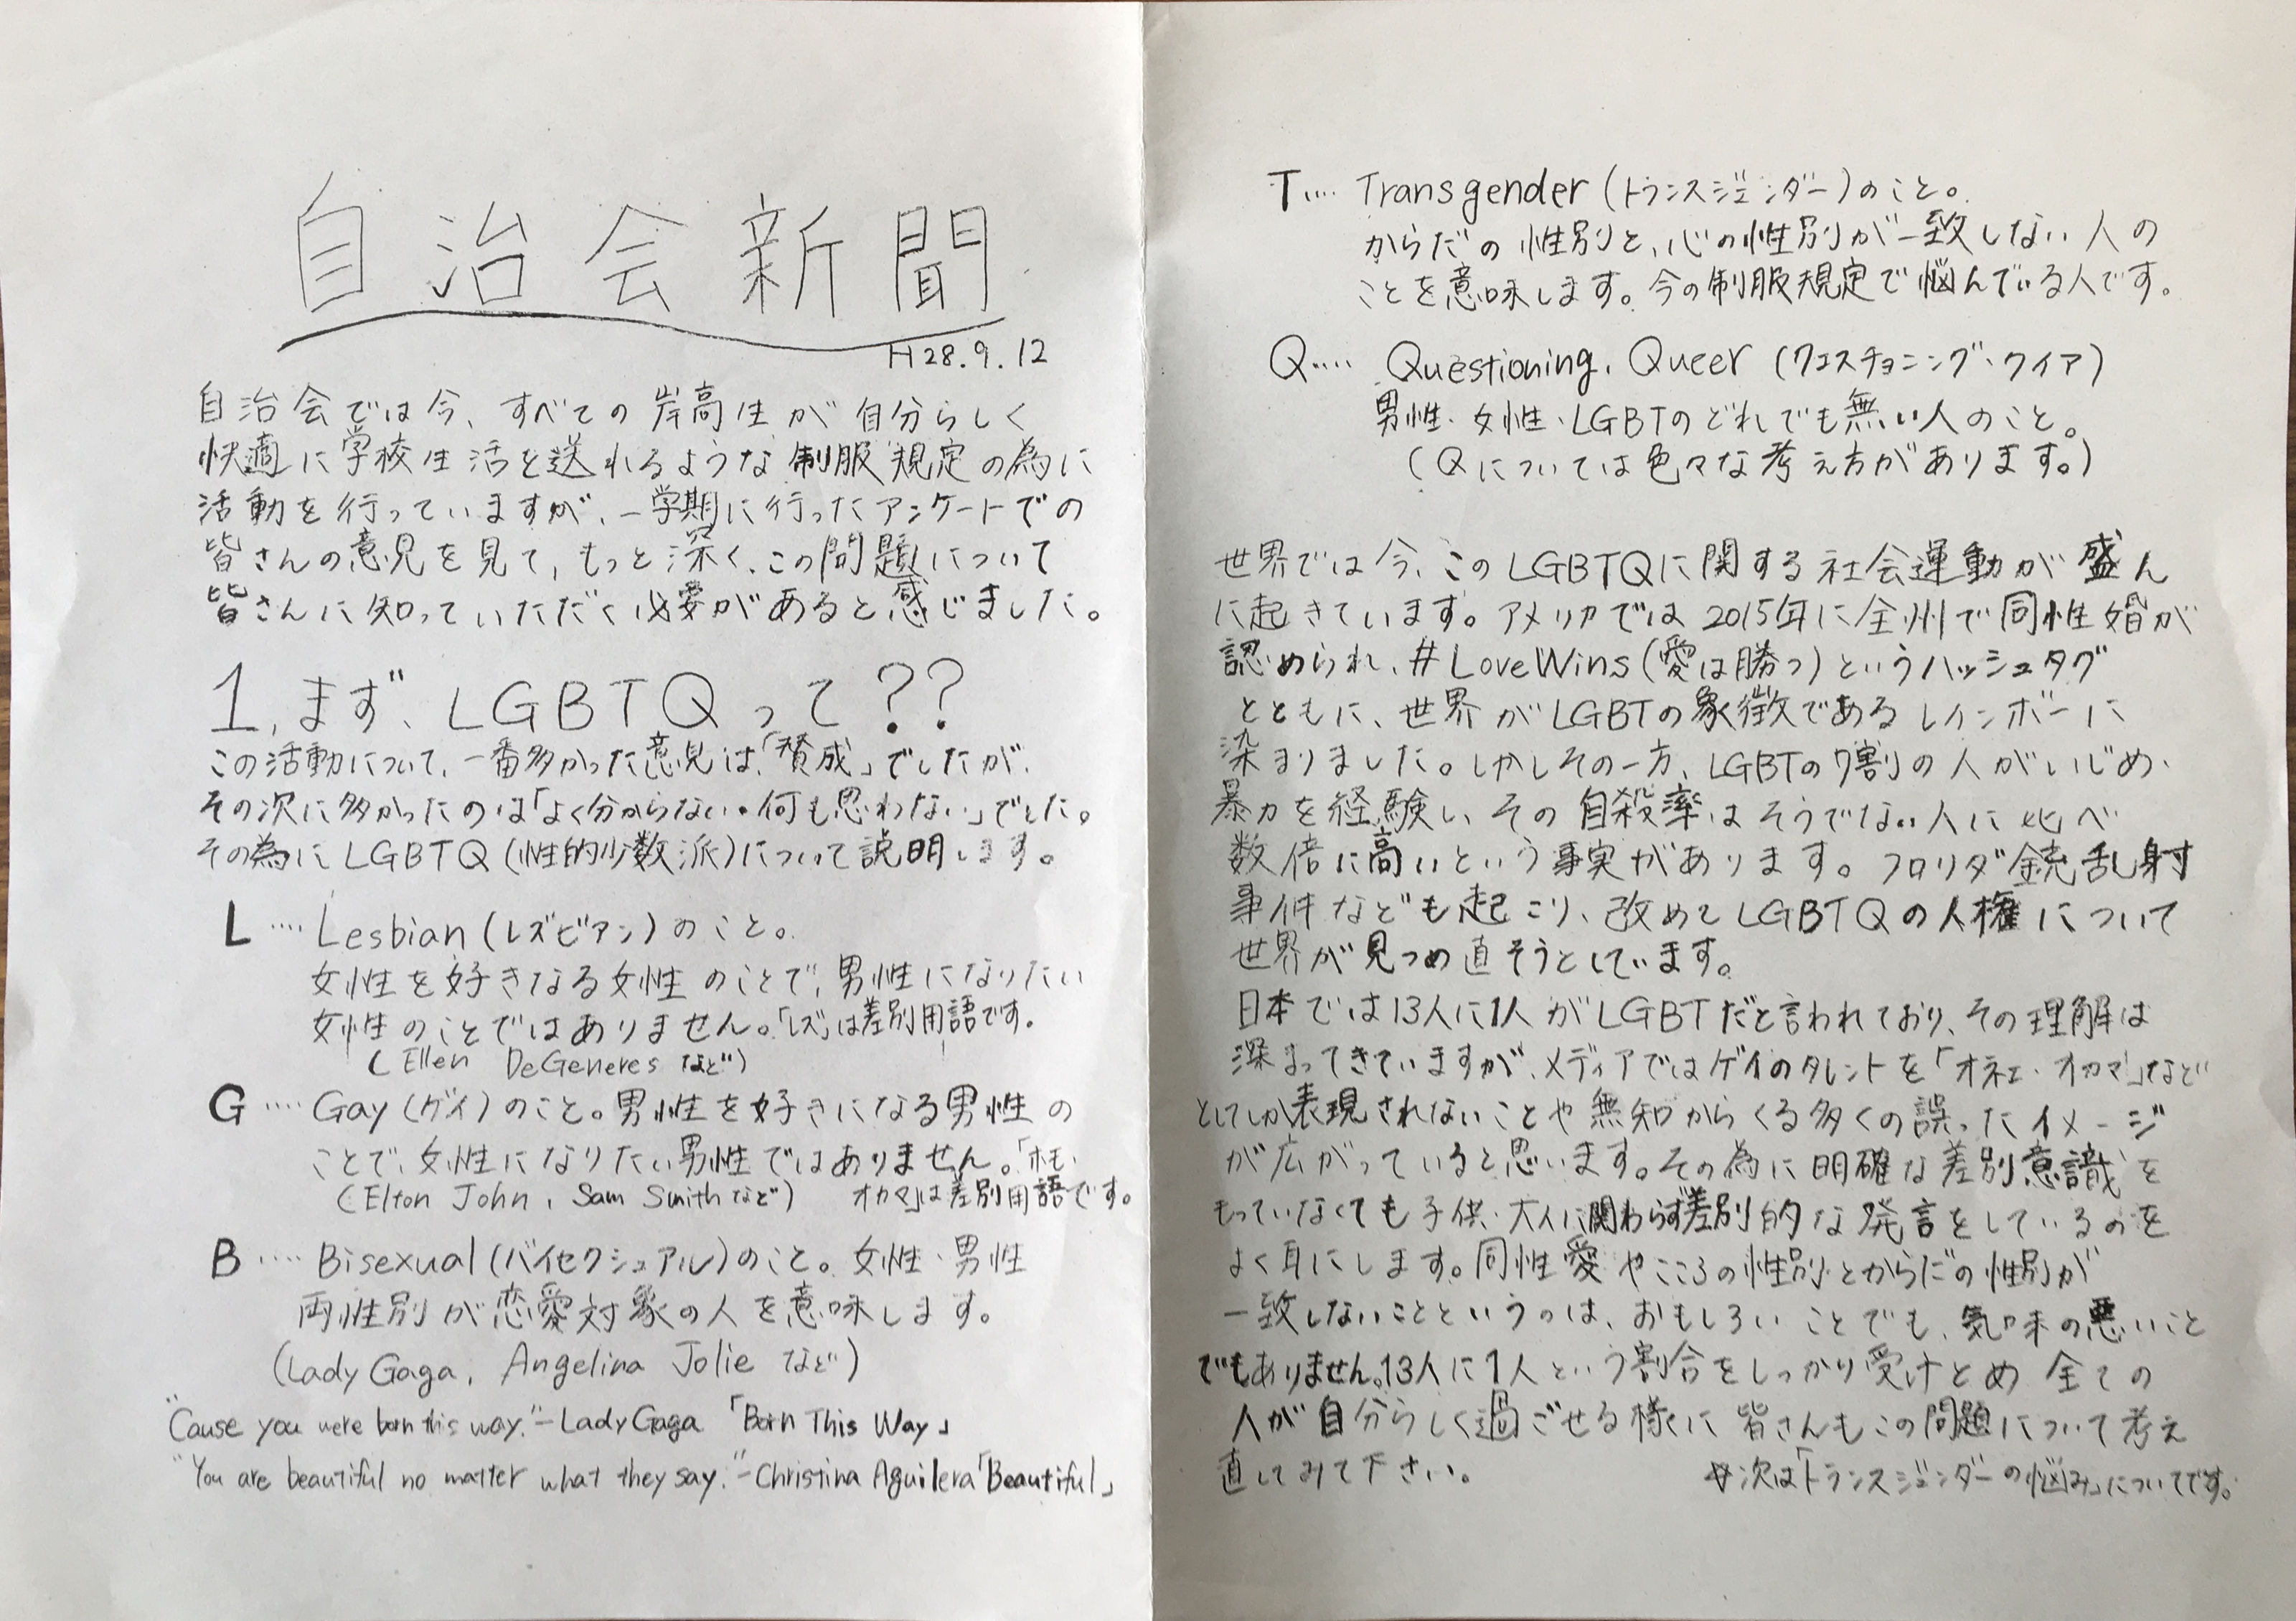 自治会新聞
H28.9.12
自治会では今、すべての岸高生が自分らしく
快適に学校生活を送れるような制服規定の為に
活動を行っていますが、一学期に行ったアンケートでの
皆さんの意見を見て、もっと深く、この問題について
皆さんに知っていただく必要があると感じました。
1, まず、LGBTQって??
この活動について、一番多かった意見は、「賛成」でしたが、
その次に多かったのは「よく分からない・何も思わない」でした。
その為にLGBTQ(性的少数派)について説明します。
L…. Lesbian(レズビアン)のこと。
女性を好きなる女性のことで、男性になりたい
女性のことではありません。「レズ」は差別用語です。
(Ellen DeGeneres など)
G…. Gay(ゲイ)のこと。男性を好きになる男性の
ことで、女性になりたい男性ではありません。「ホモ・
(Elton John, Sam Smithなど) オカマ」は差別用語です。
B…. Bisexual(バイセクシュアル)のこと。女性・男性
両性別が恋愛対象の人を意味します。
(Lady Gaga, Angelina Jolie など)
"Cause you were born this way."-Lady Gaga 「Born This Way」
"You are beautiful no matter what they say."-Christina Aguilera「Beautiful」
T…. Transgender(トランスジェンダー)のこと。
からだの性別と、心の性別が一致しない人の
ことを意味します。今の制服規定で悩んでいる人です。
Q…. Questioning, Queer (クエスチョニング・クイア)
男性・女性・LGBTのどれでも無い人のこと。
(Qについては色々な考え方があります。)
世界では今、このLGBTQに関する社会運動が盛ん
に起きています。アメリカでは2015年に全州で同性婚が
認められ、#LoveWins(愛は勝つ)というハッシュタグ
とともに、世界がLGBTの象徴であるレインボーに
染まりました。しかしその一方、LGBTの7割の人がいじめ・
暴力を経験し、その自殺率はそうでない人に比べ
数倍に高いという事実があります。フロリダ銃乱射
事件なども起こり、改めてLGBTQの人権について
世界が見つめ直そうとしています。
日本では13人に1人がLGBTだと言われており、その理解は
深まってきていますが、メディアではゲイのタレントを「オネエ・オカマ」など
としてしか表現されないことや無知からくる多くの誤ったイメージ
が広がっていると思います。その為に明確な差別意識を
もっていなくても子供・大人に関わらず差別的な発言をしているのを
よく耳にします。同性愛やこころの性別とからだの性別が
一致しないことというのは、おもしろいことでも、気味の悪いこと
でもありません。13人に1人という割合をしっかり受けとめ 全ての
人が自分らしく過ごせる様に皆さんもこの問題について考え
直してみて下さい。
☆次は「トランスジェンダーの悩み」についてです。